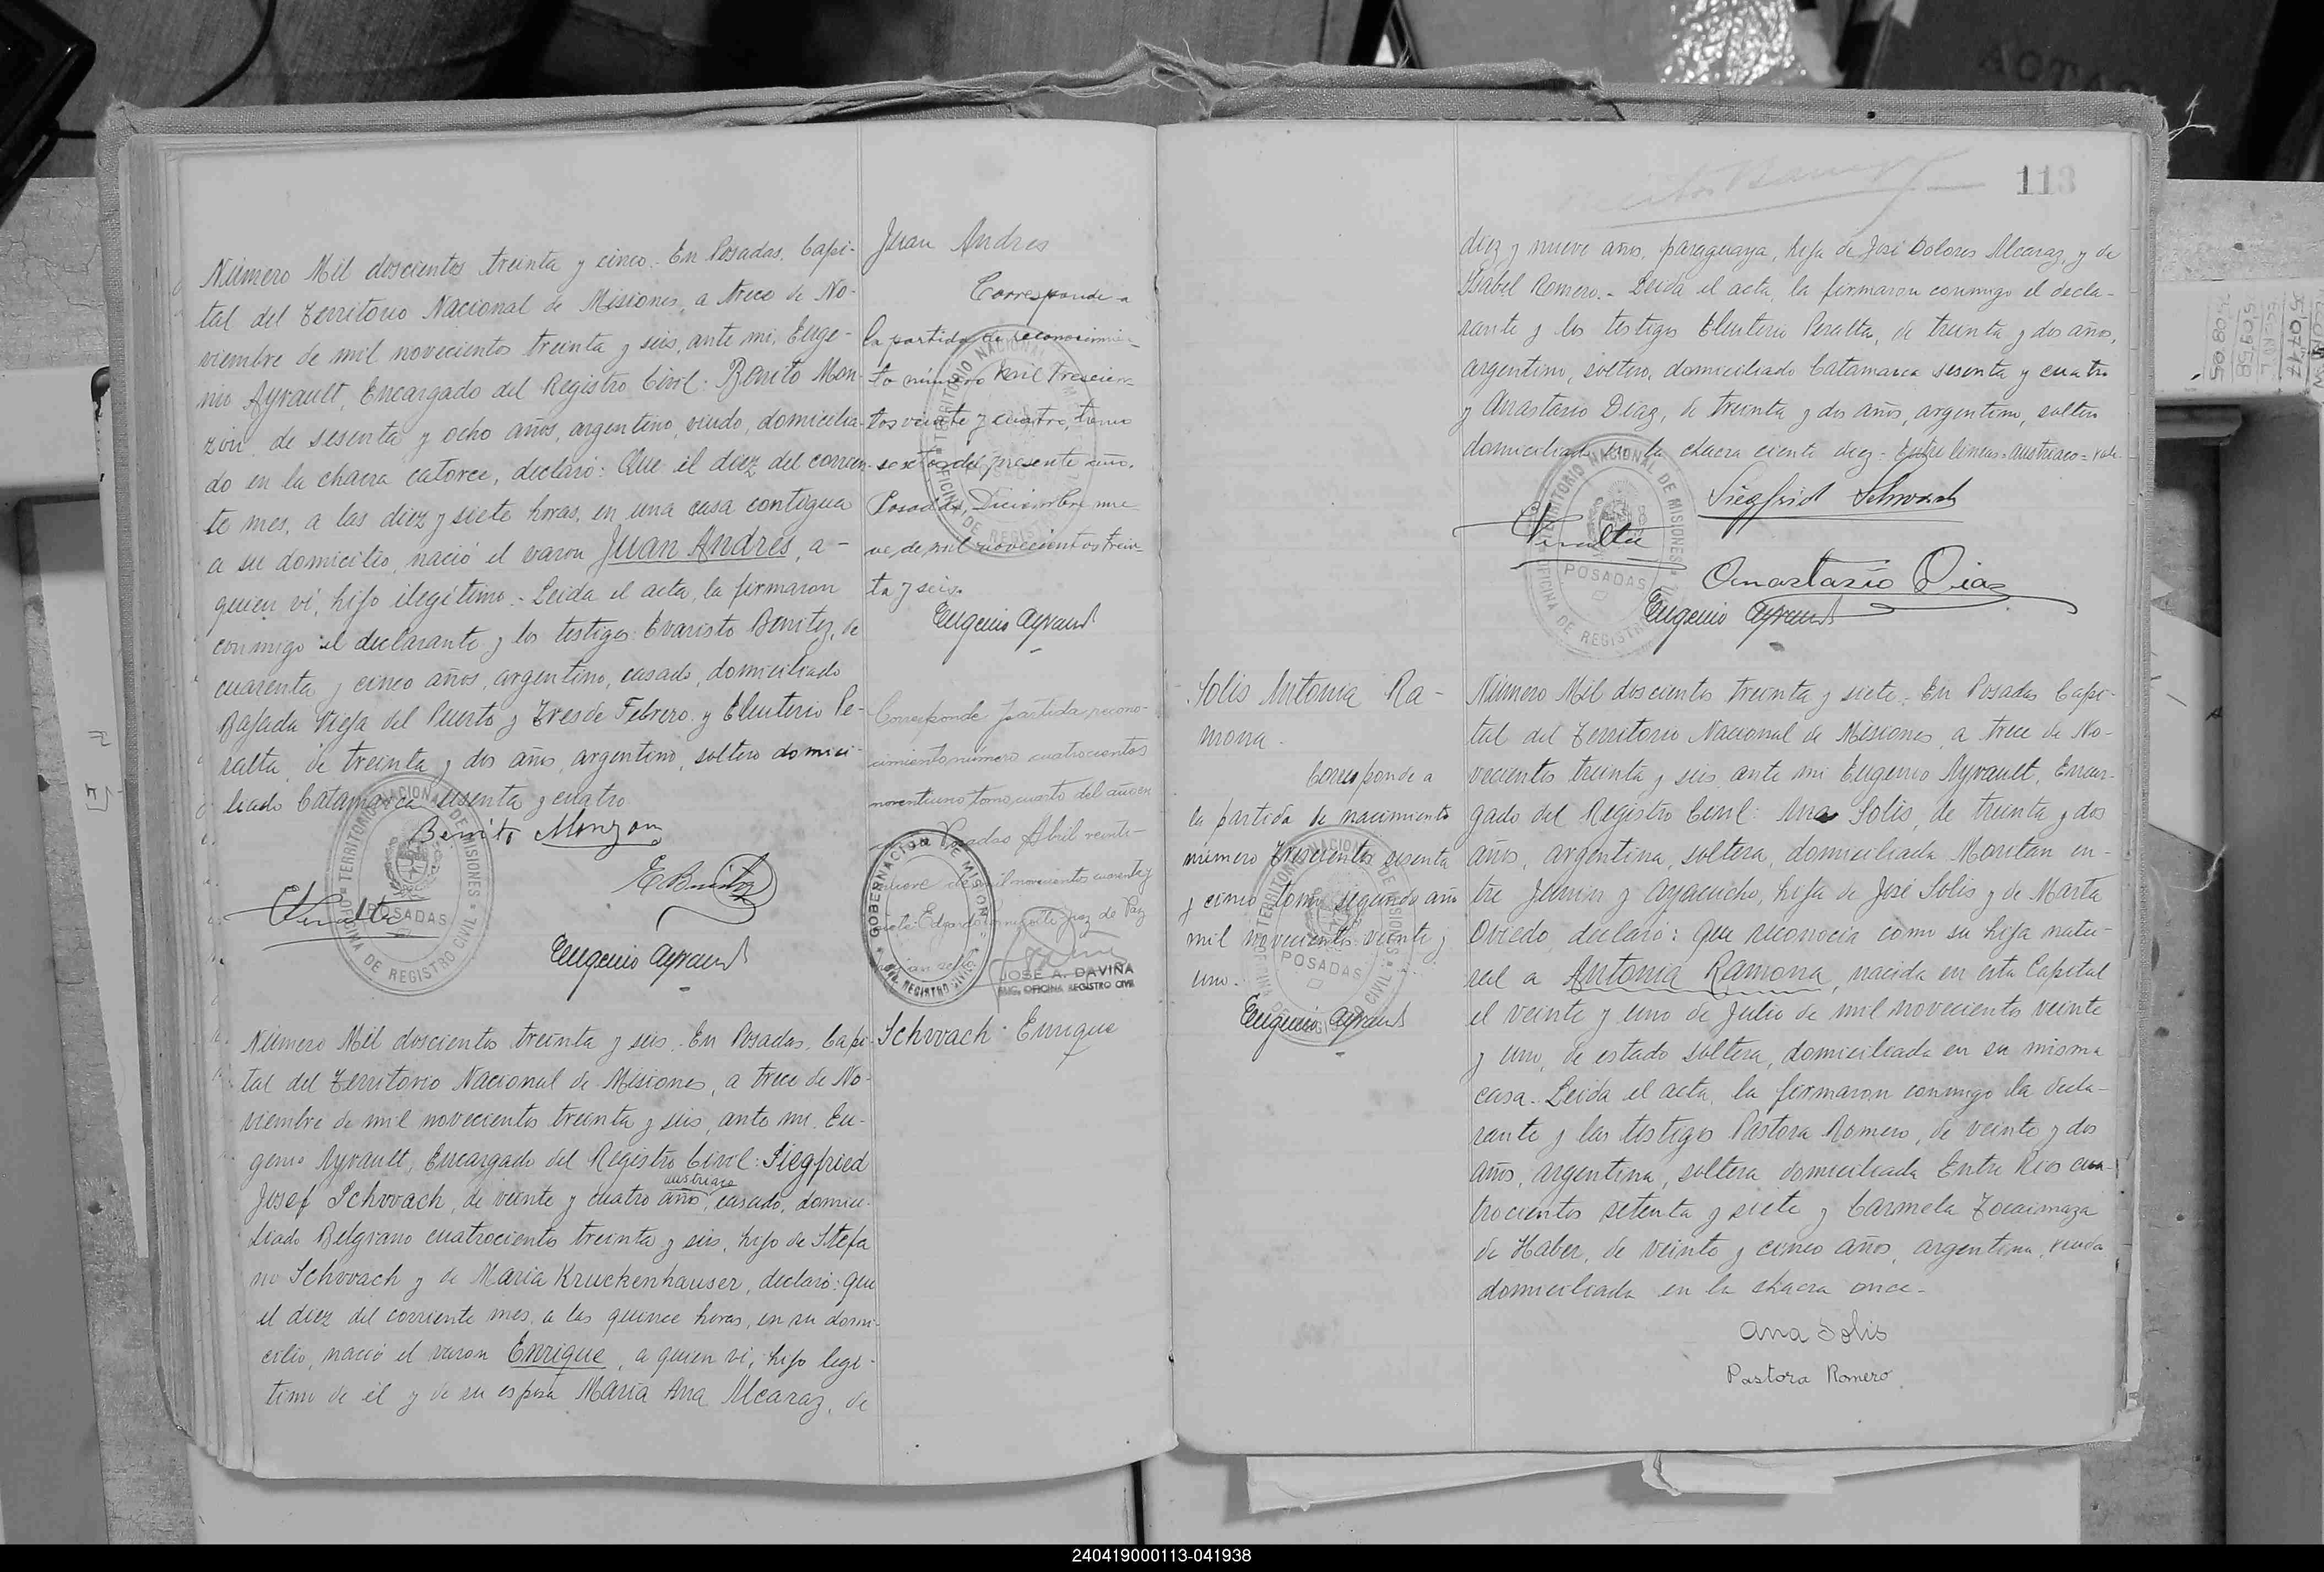 Número Mil doscientos treinta y cinco. En Posadas, Capi-
tal del Territorio Nacional de Misiones, a trece de No-
viembre de mil novecientos treinta y seis, ante mi, Euge-
nio Ayrault, Encargado del Registro Civil: Benito Mon-
zón, de sesenta y ocho años, argentino, viudo, domicilia-
do en la chacra catorce, declaró: Que el diez del corrien-
te mes, a las diez y siete horas, en una casa contigua
a su domicilio, nació el varon Juan Andrés, a -
quien vi, hijo ilegítimo.- Leida el acta, la firmaron
conmigo el declarante y los testigos: Evaristo Benitez, de
cuarenta y cinco años, argentino, casado, domiciliado
Bajada Vieja del Puerto y Tres de Febrero y Eleuterio Pe-
ralta, de treinta y dos años, argentino, soltero domici-
liado Catamarca sesenta y cuatro
Benito Monzon
E Benitez
EPeralta
Eugenio Ayrault
TERRITORIO NACIONAL DE MISIONES
POSADAS
OFICINA DE REGISTRO CIVIL
Juan Andres
Corresponde a
la partida de reconocimien-
to número mil trescien-
tos veinte y cuatro, tomo
sexto del presente año.
Posadas, Diciembre nue-
ve de mil novecientos trein-
ta y seis.
Eugenio Ayrault
Corresponde partida recono-
cimiento número cuatrocientos
noventiuno tomo cuarto del año en
Posadas Abril veinte-
de mil novecientos cuarenta y
siete Edgardo juez de Paz
GOBERNACION DE MISIONES
REGISTRO CIVIL
JOSE A. DAVIÑA
ENC. OFICINA REGISTRO CIVIL
Número Mil doscientos treinta y seis. En Posadas, Capi-
tal del Territorio Nacional de Misiones, a trece de No-
viembre de mil novecientos treinta y seis, ante mi, Eu-
genio Ayrault, Encargado del Registro Civil: Siegfried
austriaco
Josef Schwach, de veinte y cuatro años, casado, domici-
liado Belgrano cuatrocientos treinta y seis, hijo de Stefa
no Schwach y de Maria Kruckenhauser, declaró: que
el diez del corriente mes, a las quince horas, en su domi-
cilio, nació el varon Enrique, a quien vi, hijo legi-
timo de él y de su esposa María Ana Alcaraz, de
Schwach Enrique
113
diez y nueve años, paraguaya, hija de José Dolores Alcaraz, y de
Isabel Romero.- Leida el acta, la firmaron conmigo el decla-
rante y los testigos Eleuterio Peralta, de treinta y dos años,
argentino, soltero, domiciliado Catamarca sesenta y cuatro
y Anastasio Diaz, de treinta y dos años, argentino, soltero
domiciliado en la chacra ciento diez - Entre lineas=austriaco=vale.
Siegfrid Schwach
EPeralta
Anastasio Diaz
Eugenio Ayrault
TERRITORIO NACIONAL DE MISIONES
POSADAS
OFICINA DE REGISTRO CIVIL
Solis Antonia Ra-
mona.
Corresponde a
la partida de nacimiento
número trescientos sesenta
y cinco tomo segundo año
mil novecientos veinte y
uno.
Eugenio Ayrault
TERRITORIO NACIONAL DE MISIONES
POSADAS
OFICINA CIVIL
Número Mil doscientos treinta y siete. En Posadas Capi-
tal del Territorio Nacional de Misiones, a trece de No-
vecientos treinta y seis, ante mi Eugenio Ayrault, Encar-
gado del Registro Civil: Ana Solis, de treinta y dos
años, argentina, soltera, domiciliada Moritán en-
tre Junin y Ayacucho, hija de José Solis y de Marta
Oviedo, declaró: que reconocia como su hija natu-
ral a Antonia Ramona, nacida en esta Capital
el veinte y uno de Julio de mil novecientos veinte
y uno, de estado soltera, domiciliada en su misma
casa. Leida el acta, la firmaron conmigo la decla-
rante y las testigos Pastora Romero, de veinte y dos
años, argentina, soltera domiciliada Entre Rios cua-
trocientos setenta y siete y Carmela Tocaimaza
de Haber, de veinte y cinco años, argentina, viuda
domiciliada en la chacra once.
Ana Solis
Pastora Romero
240419000113-041938